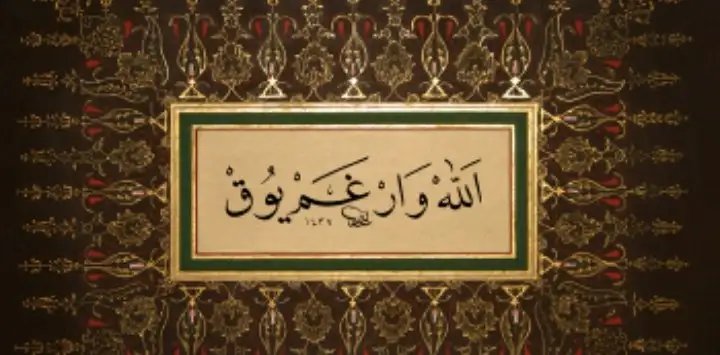 اَللّٰهْ وَارْ غَمْ يُوقْ
١٤٣٧